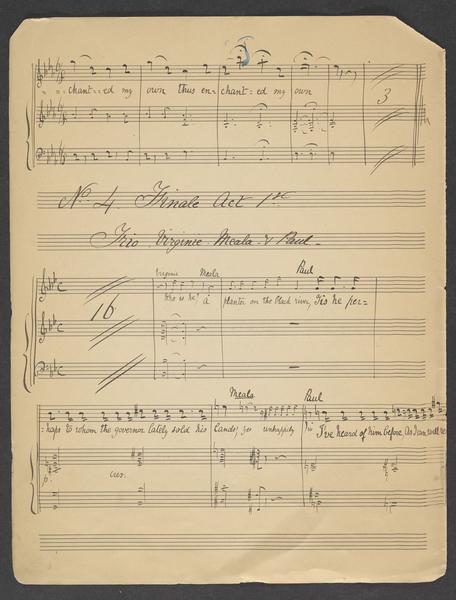 chant=ed my own thus en= chant=ed my own
3
No. 4 Finale Act 1st
Trio Virginie Meala & Paul
Virginie Meala Paul
16
Who is he? a planter on the Black river, Tis he per=
Meala Paul
=haps to whom the governor lately sold his lands! yes unhappily Tis I've heard of him before, As I am well
cres.
p